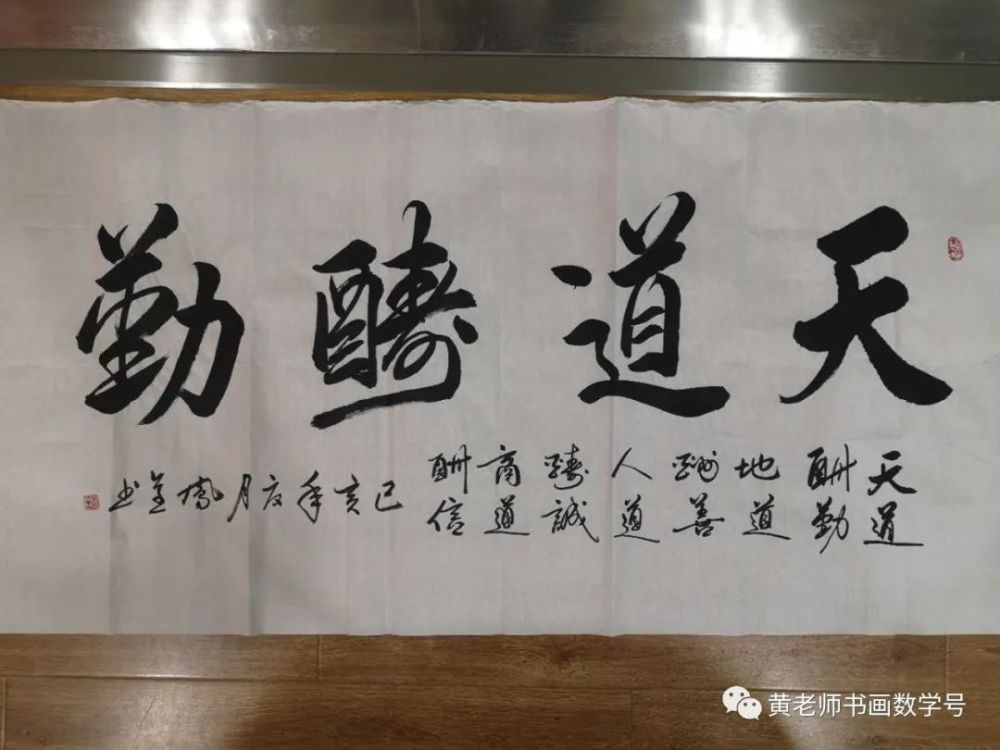 天道醻勤
天道
酬勤
地道
酬善
人道
醻誠
商道
酬信
己亥年夏月 书
黄老师书画数学号